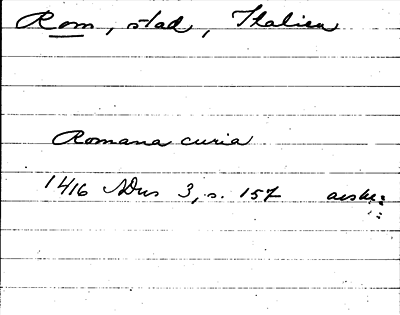 Rom, stad, Italien
Romana curia
1416 NDns 3, s. 157 avskr: